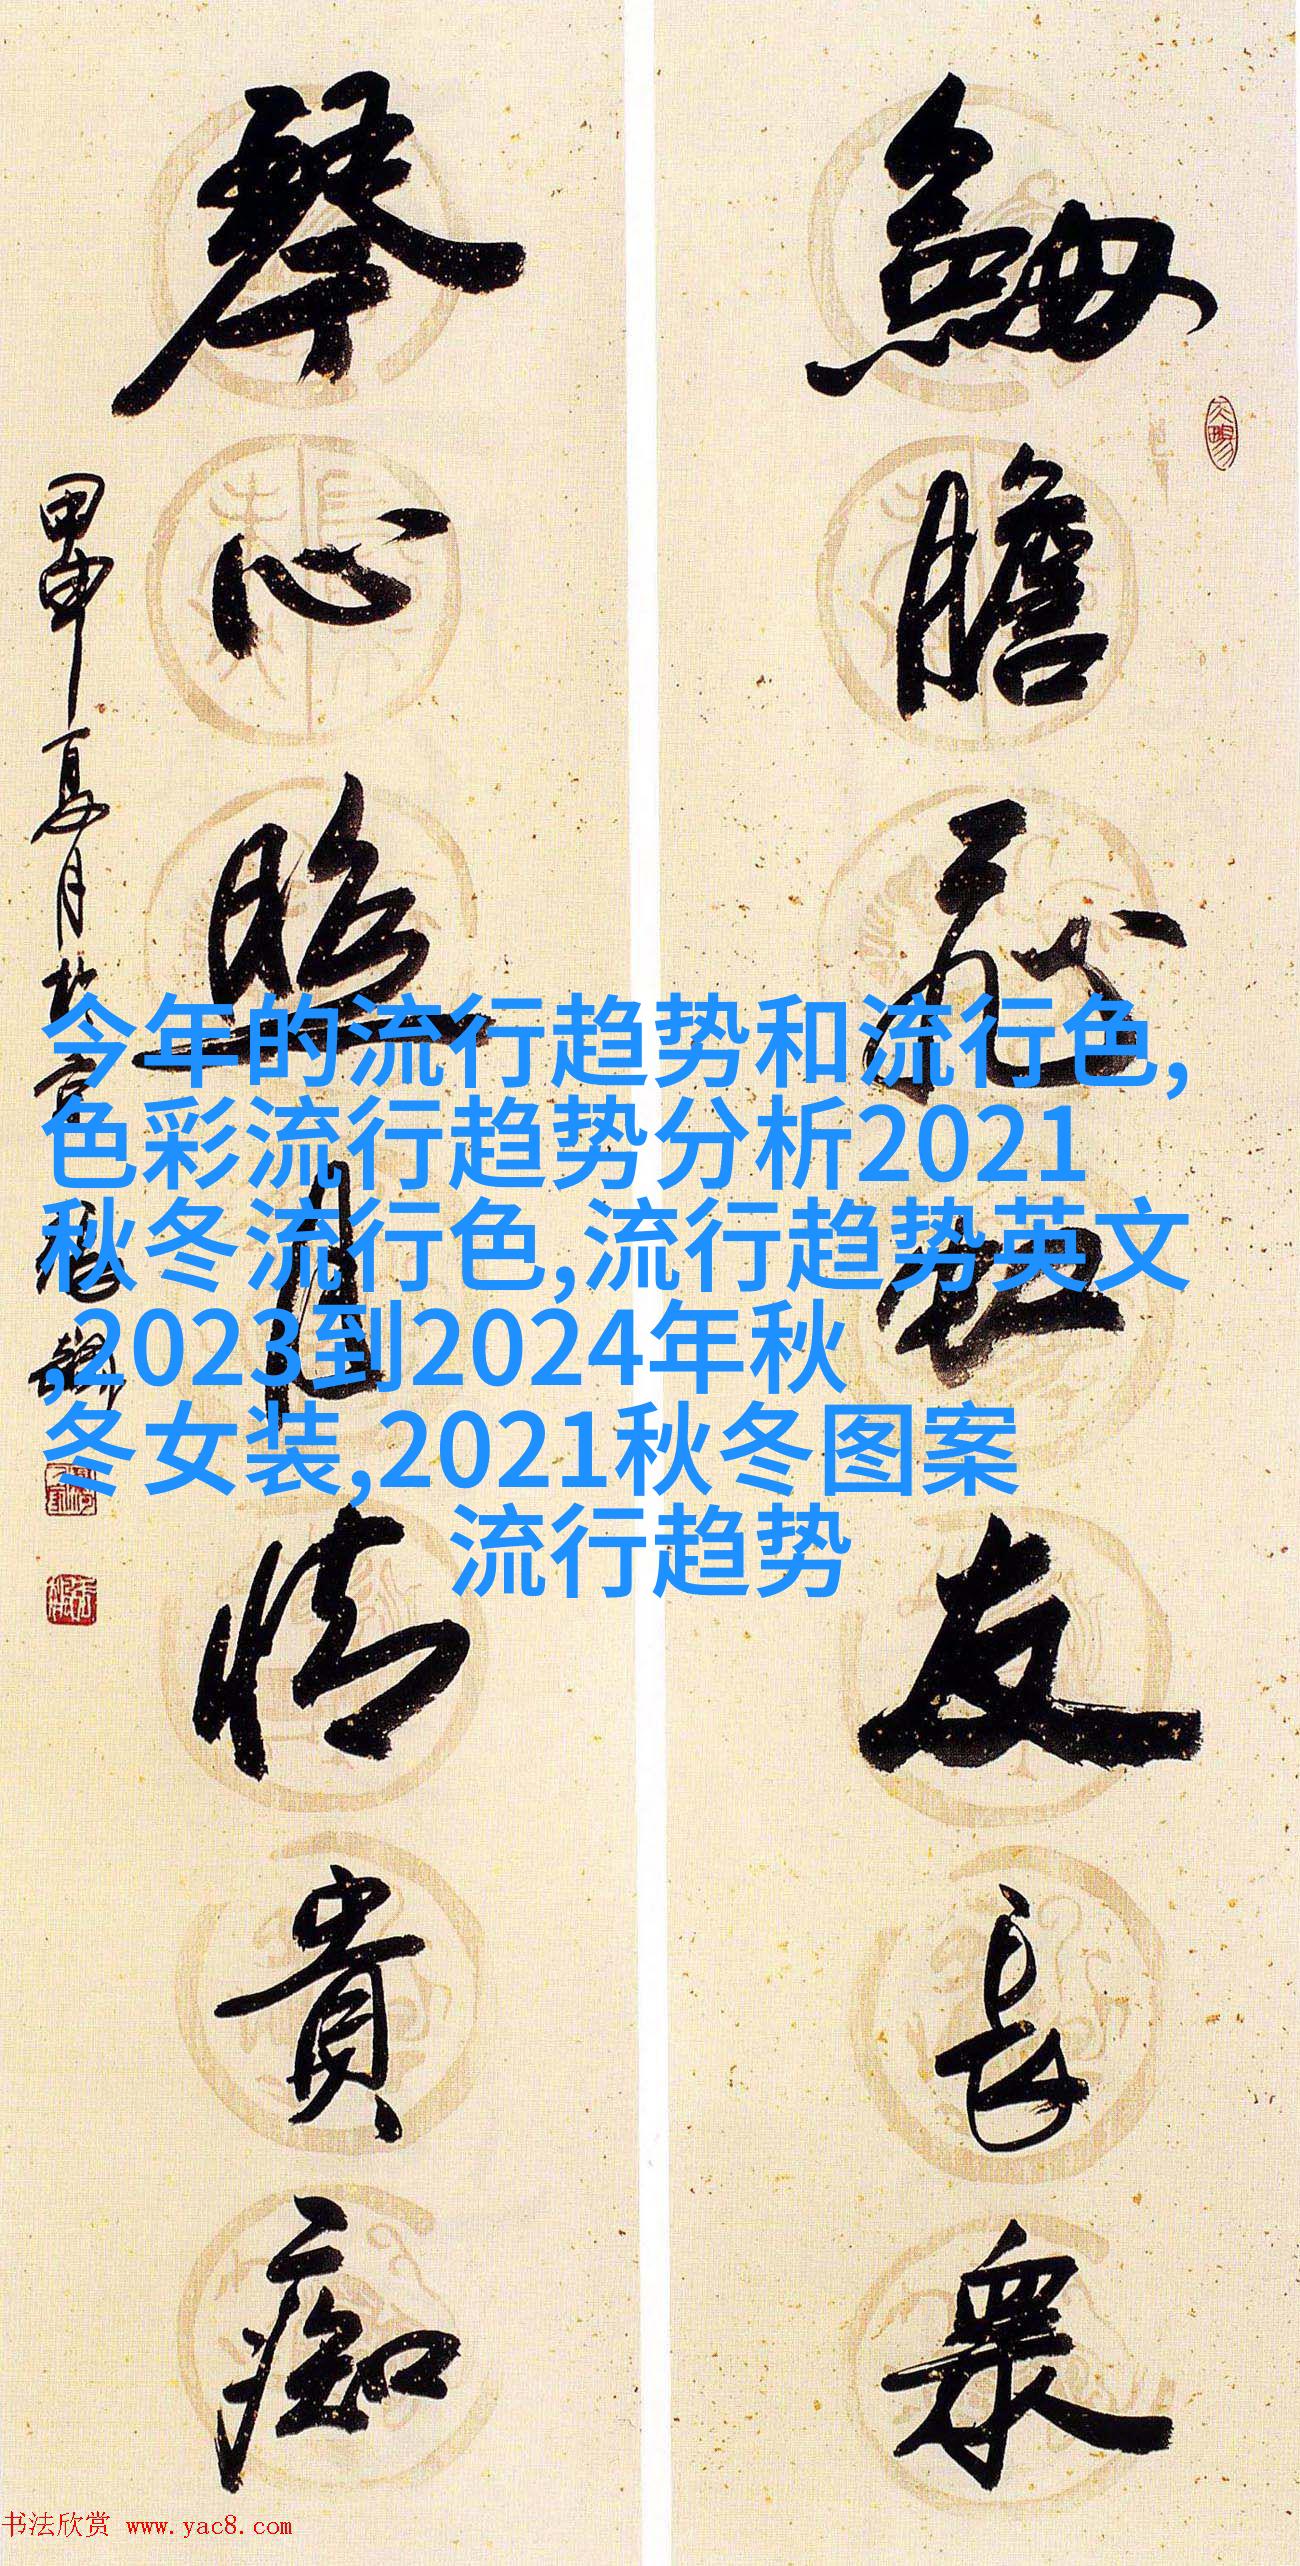 劔膽虹友長衆
琴心照月情貴痴
甲申夏月於京
今年的流行趋势和流行色,
色彩流行趋势分析2021
秋冬流行色,流行趋势英文
,2023到2024年秋
冬女装,2021秋冬图案
流行趋势
书法欣赏 www.yac8.com